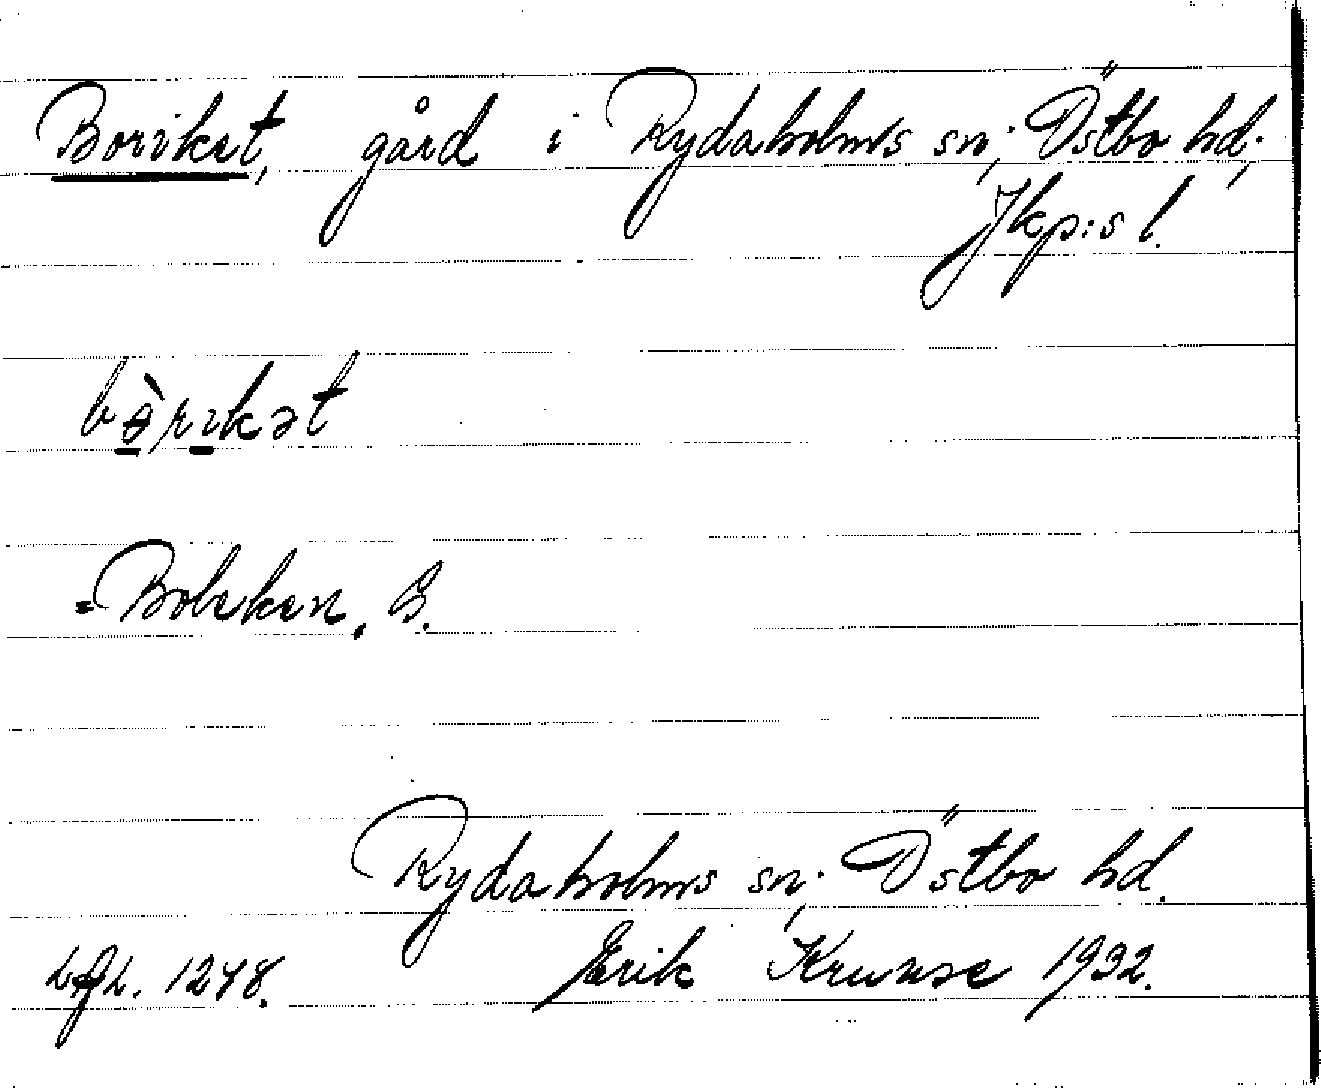 Boriket, gård i Rydaholms sn; Östbo hd;
Jkp:s l.
bɵ̀rikət
= Boleken, G.
Rydaholms sn; Östbo hd.
1248. Erik Kruuse 1932.